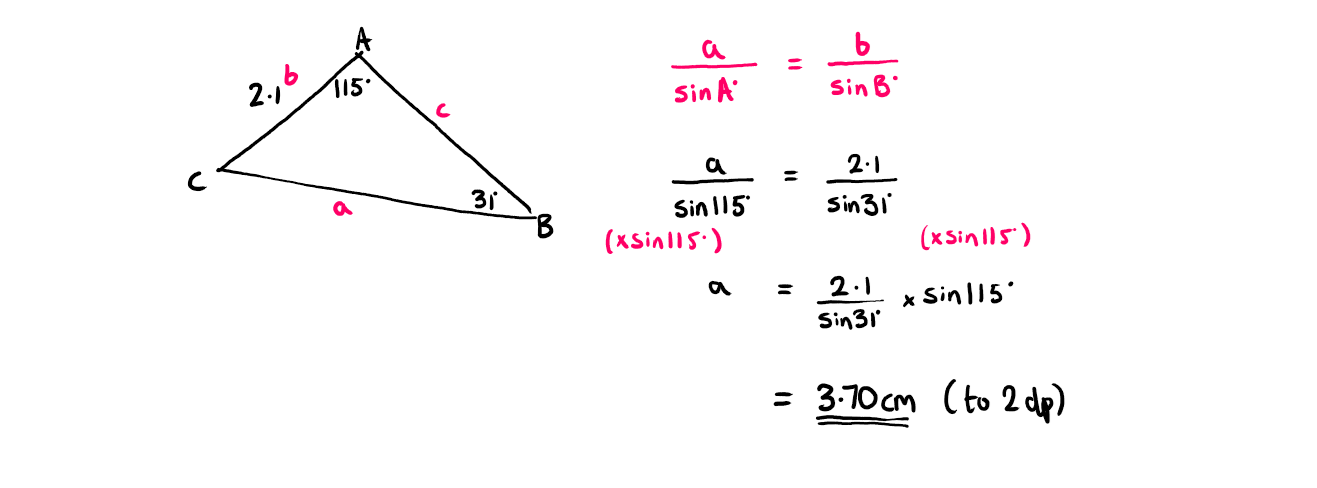 A
2.1 b
115°
c
C
a
31°
B
a/sinA° = b/sinB°
a/sin115° = 2.1/sin31°
(xsin115°) (xsin115°)
a = 2.1/sin31° x sin115°
= 3.70cm (to 2dp)